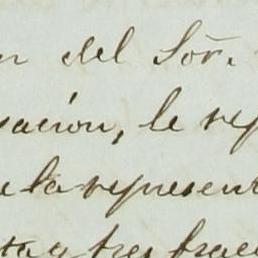 n del Sor.
sacion, le rep
e la represent
ta y tres frac